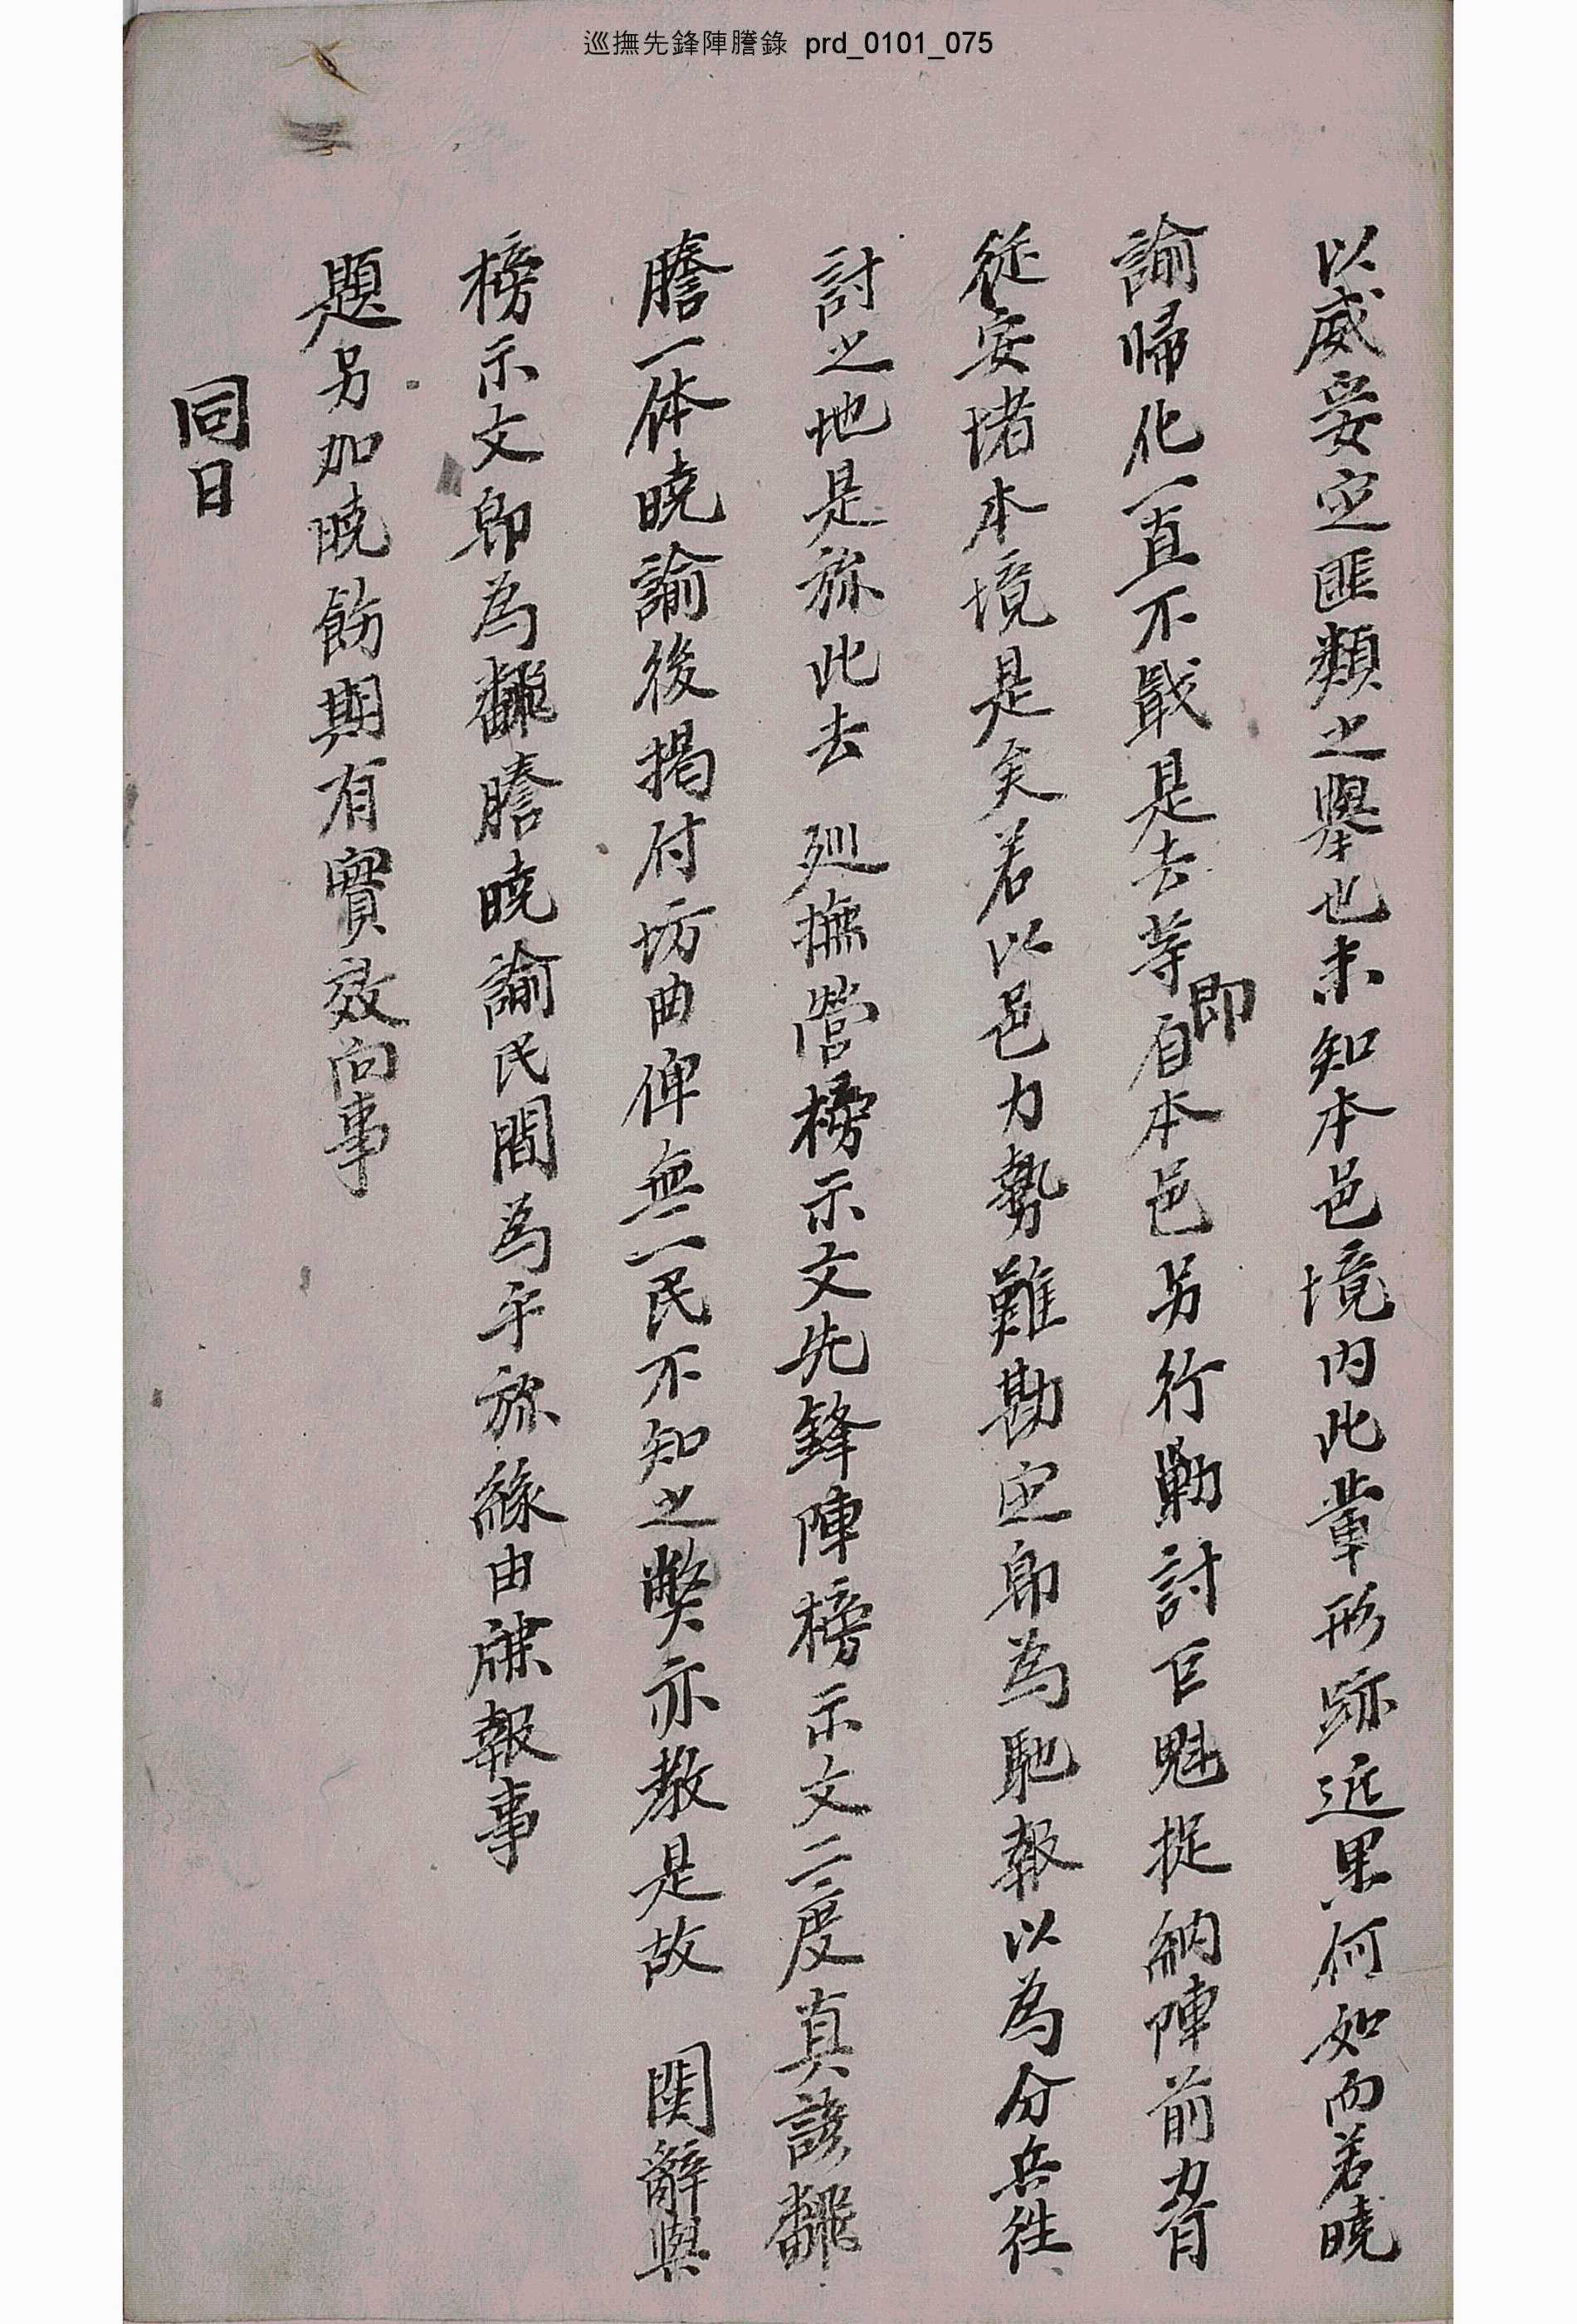 巡撫先鋒陣謄錄 prd_0101_075
以威妥定匪類之擧也未知本邑境內此輩形跡近果何如而若曉
諭歸化一直不戢是去等即自本邑另行勦討巨魁捉納陣前脅
從安堵本境是矣若以邑力勢難勘定卽爲馳報以爲分兵往
討之地是旀此去 廵撫營榜示文先鋒陣榜示文二度眞諺翻
謄一体曉諭後揭付坊曲俾無一民不知之弊亦敎是故 關辭與
榜示文卽爲飜謄曉諭民間爲乎旀緣由牒報事
題另加曉飭期有實效向事
同日